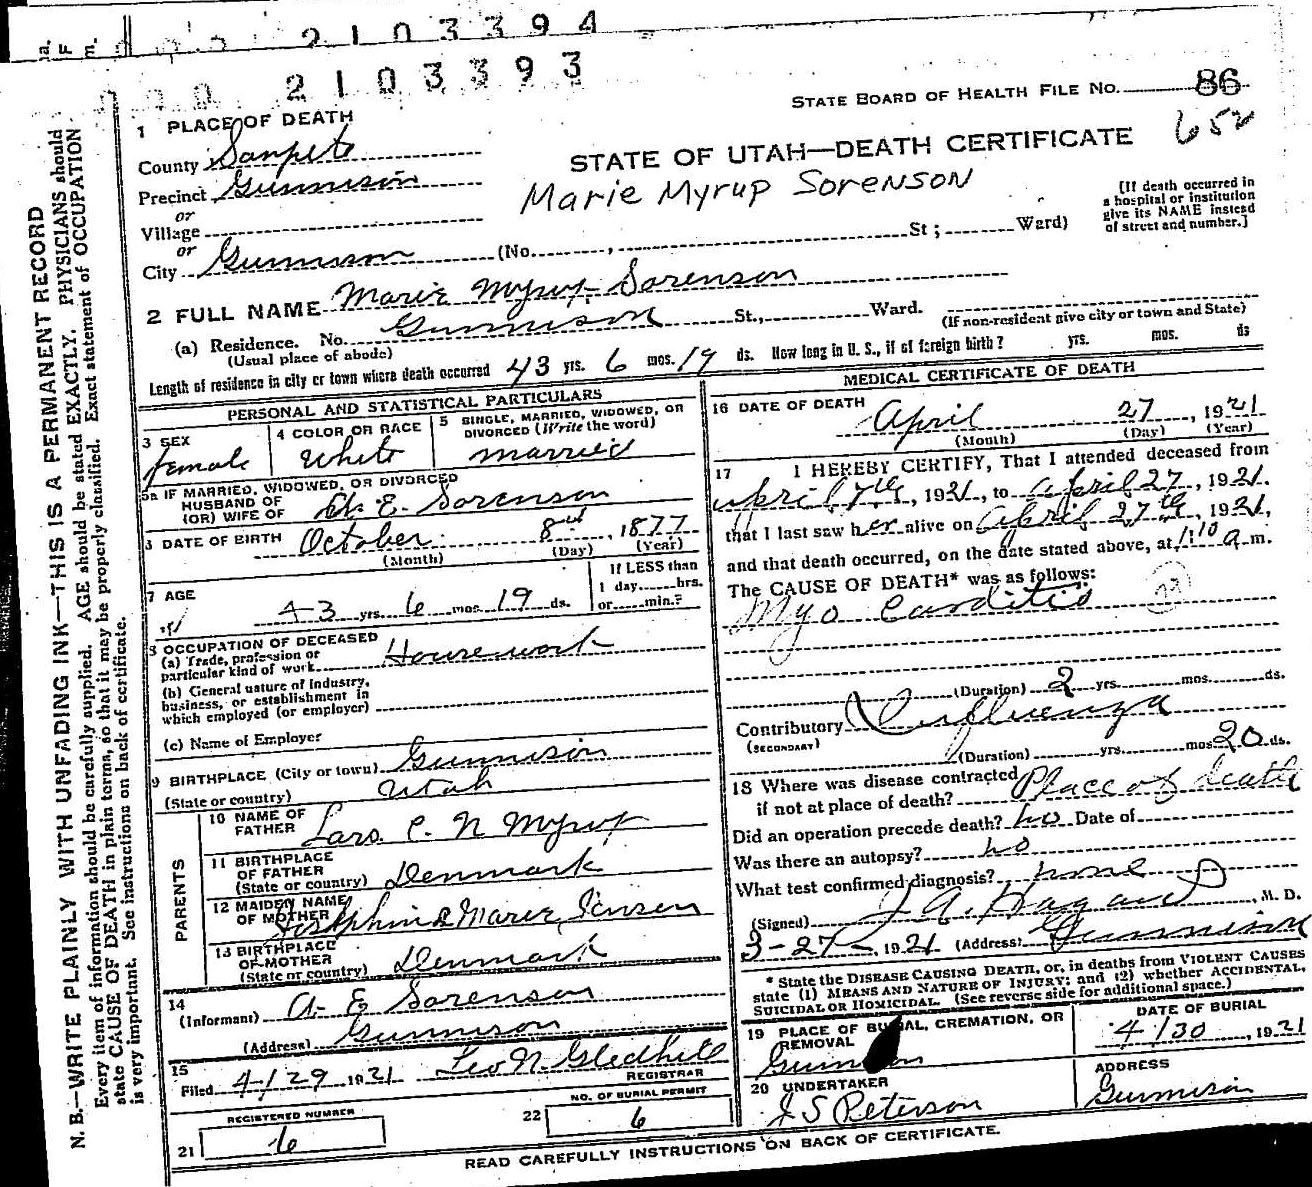 2103394
2103393
STATE BOARD OF HEALTH FILE NO. 86
652
1 PLACE OF DEATH
County Sanpete
STATE OF UTAH—DEATH CERTIFICATE
Precinct Gunnison
Marie Myrup Sorenson
[If death occurred in
a hospital or institution
give its NAME instead
of street and number.]
or
Village
or
City Gunnison (No. , St ; Ward)
2 FULL NAME Marie Myrup Sorenson
(a) Residence. No. Gunnison St., Ward.
(Usual place of abode) (If non-resident give city or town and State)
Length of residence in city or town where death occurred 43 yrs. 6 mos. 19 ds. How long in U. S., if of foreign birth? yrs. mos. ds
PERSONAL AND STATISTICAL PARTICULARS
3 SEX female
4 COLOR OR RACE White
5 SINGLE, MARRIED, WIDOWED, OR
DIVORCED (Write the word)
married
5a IF MARRIED, WIDOWED, OR DIVORCED
HUSBAND OF
(OR) WIFE OF A. E. Sorenson
DATE OF BIRTH October 8, 1877
(Month) (Day) (Year)
7 AGE 43 yrs. 6 mos. 19 ds.
If LESS than
1 day hrs.
or min.?
8 OCCUPATION OF DECEASED
(a) Trade, profession or
particular kind of work House work
(b) General nature of Industry,
business, or establishment in
which employed (or employer)
(c) Name of Employer
9 BIRTHPLACE (City or town) Gunnison
(State or country) Utah
PARENTS
10 NAME OF
FATHER Lars C. N Myrup
11 BIRTHPLACE
OF FATHER
(State or country) Denmark
12 MAIDEN NAME
OF MOTHER Josephine Marie Jensen
13 BIRTHPLACE
OF MOTHER
(State or country) Denmark
14
(Informant) A. E Sorenson
(Address) Gunnison
15
Filed 4/29 1921 Leo N. Gledhill
REGISTRAR
REGISTERED NUMBER
21 6
NO. OF BURIAL PERMIT
22 6
MEDICAL CERTIFICATE OF DEATH
16 DATE OF DEATH April 27, 1921
(Month) (Day) (Year)
17 I HEREBY CERTIFY, That I attended deceased from
April 7th, 1921, to April 27, 1921.
that I last saw her alive on April 27th, 1921,
and that death occurred, on the date stated above, at 1:10 a m.
The CAUSE OF DEATH* was as follows:
Myo Carditis
(Duration) 2 yrs. mos. ds.
Contributory Influenza
(SECONDARY)
(Duration) yrs. mos. 20 ds.
18 Where was disease contracted
if not at place of death? Place of death
Did an operation precede death? no Date of
Was there an autopsy? no
What test confirmed diagnosis? none
(Signed) J. A. Hagan, M. D.
3-27-, 1921 (Address) Gunnison
* State the DISEASE CAUSING DEATH, or, in deaths from VIOLENT CAUSES
state (1) MEANS AND NATURE OF INJURY; and (2) whether ACCIDENTAL,
SUICIDAL OR HOMICIDAL. (See reverse side for additional space.)
19 PLACE OF BURIAL, CREMATION, OR
REMOVAL
Gunnison
DATE OF BURIAL
4/30, 1921
20 UNDERTAKER
J S Peterson
ADDRESS
Gunnison
READ CAREFULLY INSTRUCTIONS ON BACK OF CERTIFICATE.
N. B.—WRITE PLAINLY WITH UNFADING INK—THIS IS A PERMANENT RECORD
Every item of information should be carefully supplied. AGE should be stated EXACTLY. PHYSICIANS should
state CAUSE OF DEATH in plain terms, so that it may be properly classified. Exact statement of OCCUPATION
is very important. See instructions on back of certificate.